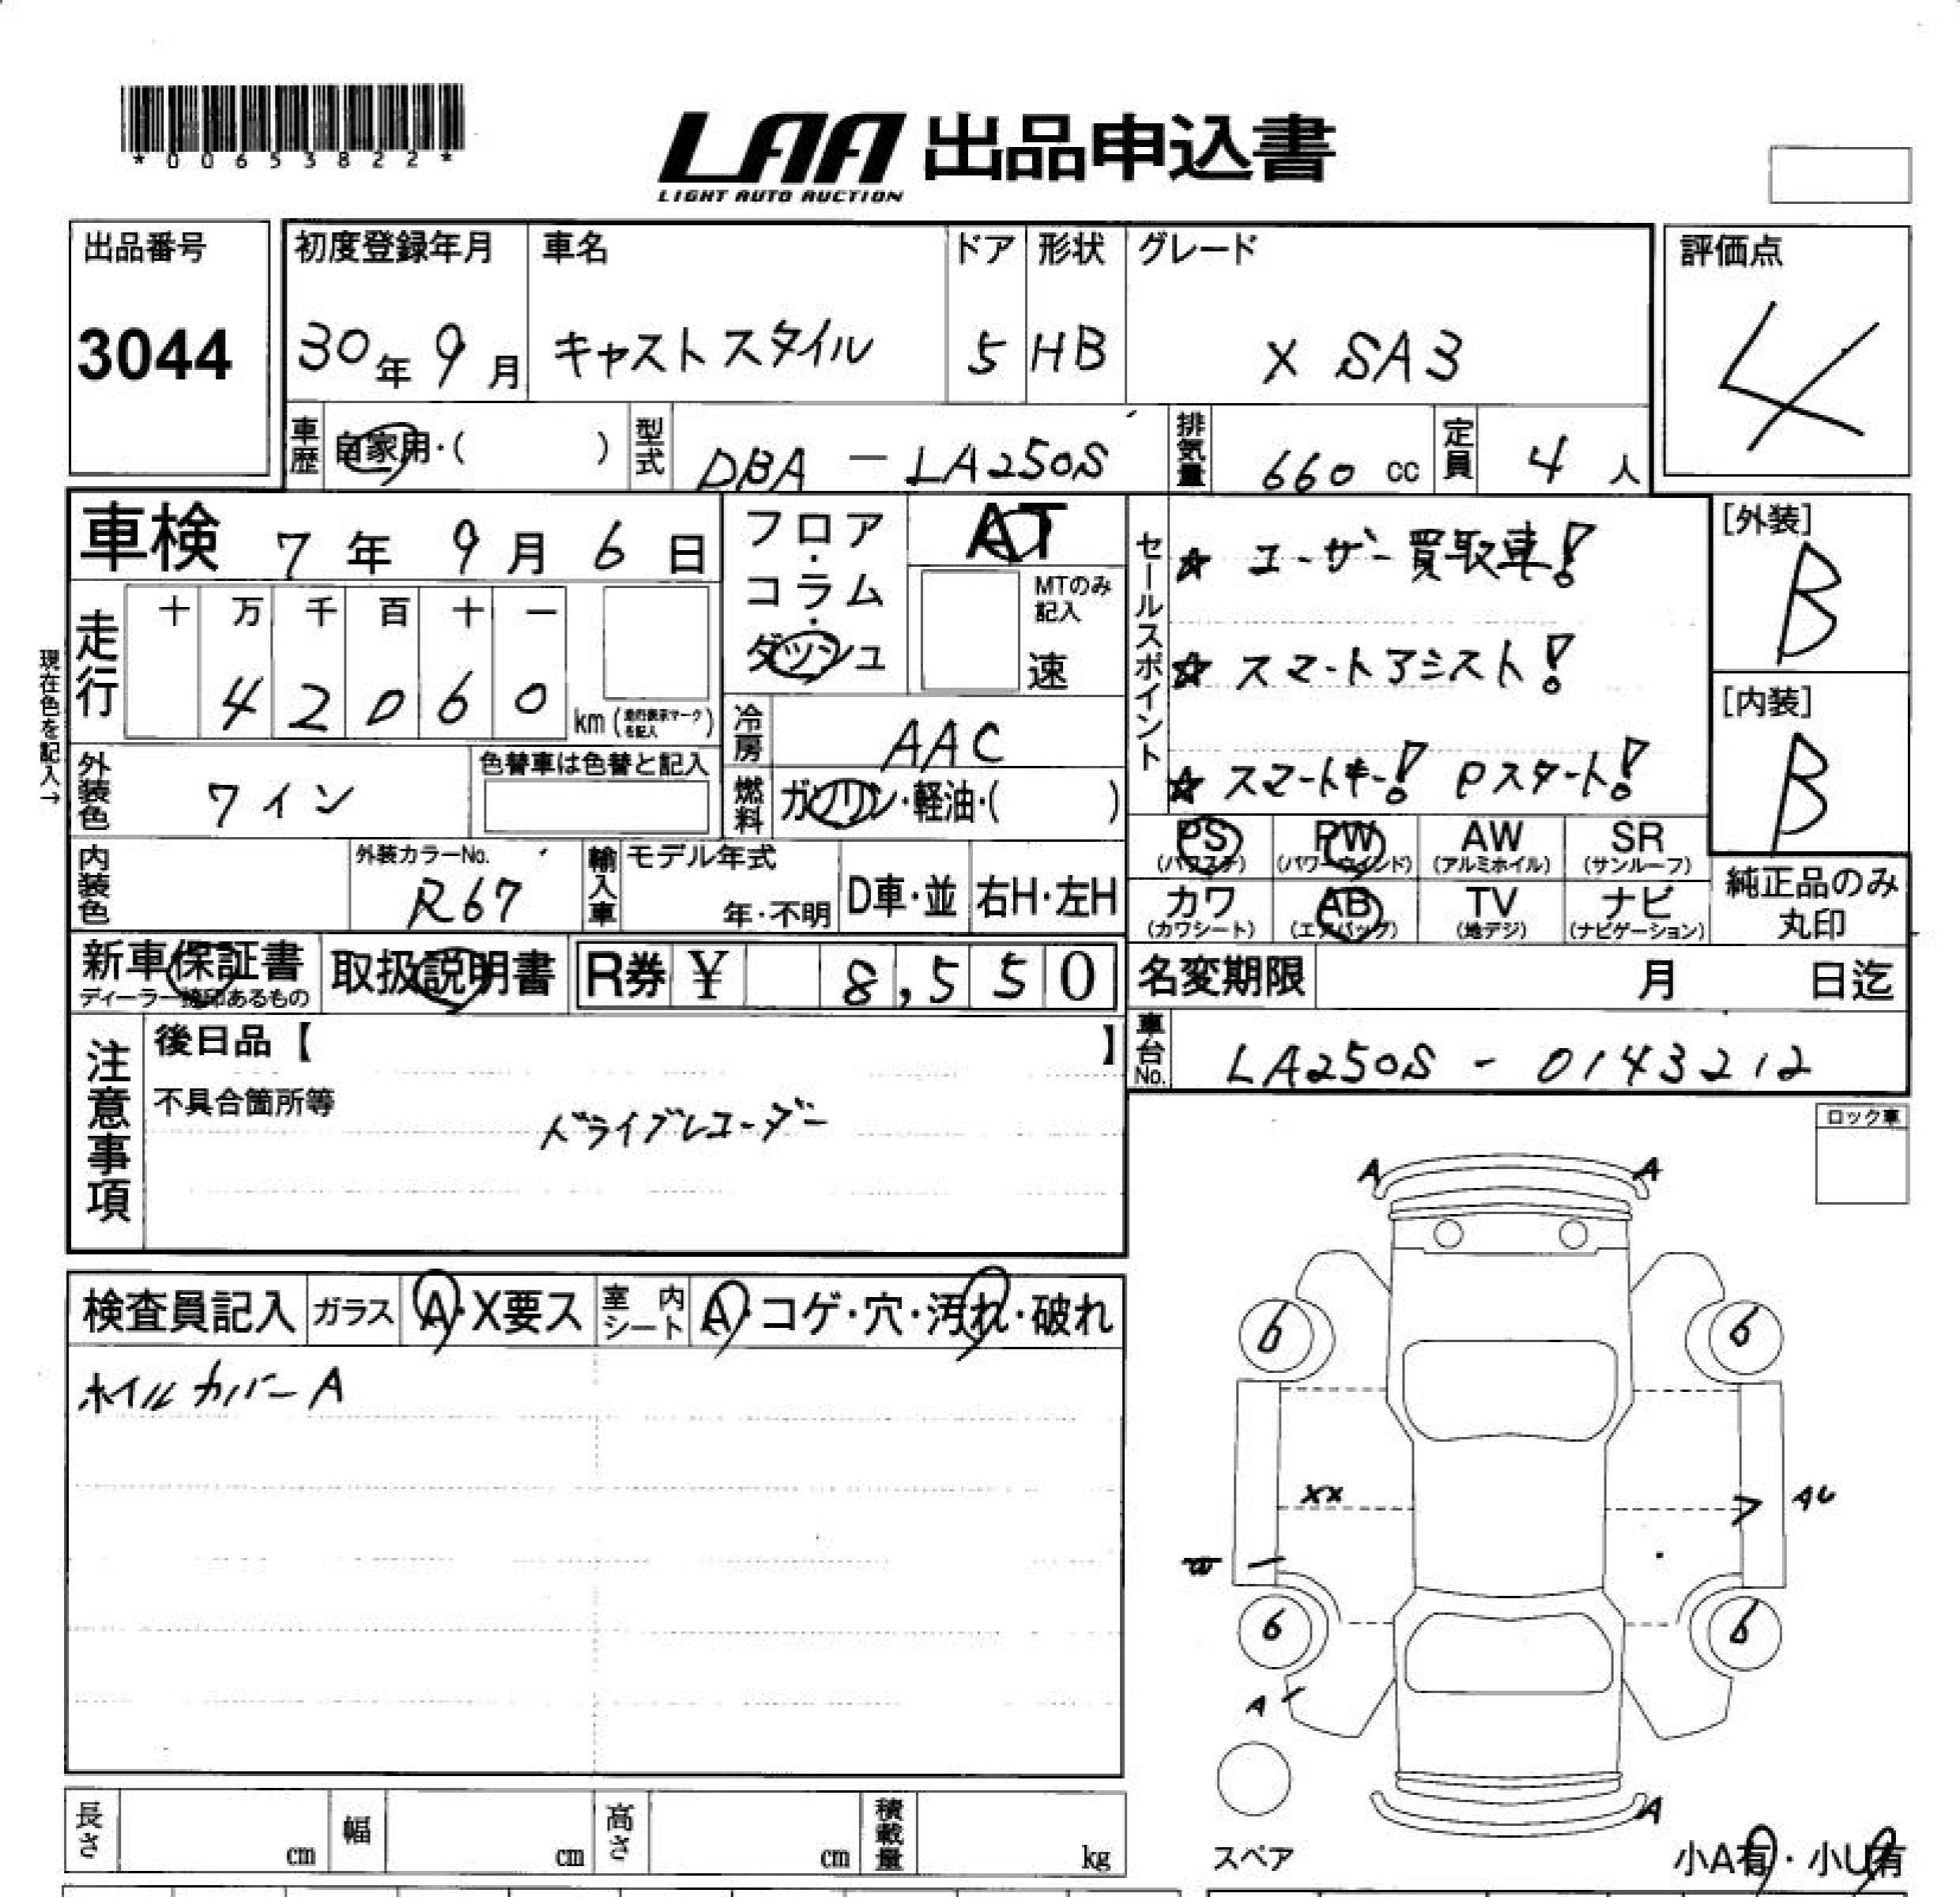 *00653822*
LAA 出品申込書
LIGHT AUTO AUCTION
出品番号
3044
初度登録年月
30年 9月
車名
キャストスタイル
ドア
5
形状
HB
グレード
X SA3
評価点
4
車歴
自家用・( )
型式
DBA - LA250S
排気量
660 cc
定員
4 人
車検 7年 9月 6日
フロア・コラム・ダッシュ
AT
MTのみ記入
速
セールスポイント
☆ ユーザー買取車!
☆ スマートアシスト!
☆ スマートキー! Pスタート!
[外装]
B
[内装]
B
現在色を記入→
走行
十 万 千 百 十 一
4 2 0 6 0
km (走行表示マークを記入)
冷房
AAC
外装色
ワイン
色替車は色替と記入
燃料
ガソリン・軽油・( )
内装色
外装カラーNo.
R67
輸入車
モデル年式
年・不明
D車・並
右H・左H
PS
(パワステ)
PW
(パワーウィンド)
AW
(アルミホイル)
SR
(サンルーフ)
カワ
(カワシート)
AB
(エアバッグ)
TV
(地デジ)
ナビ
(ナビゲーション)
純正品のみ
丸印
新車保証書
ディーラー捺印あるもの
取扱説明書
R券 ¥ 8,550
名変期限
月 日迄
車台No.
LA250S - 0143212
注意事項
後日品【 】
不具合箇所等
ドライブレコーダー
ロック車
検査員記入
ガラス
A・X要ス
室内シート
A・コゲ・穴・汚れ・破れ
ホイルカバーA
A A
6 6
XX
AU
6 6
A
A
スペア
小A有・小U有
長さ
cm
幅
cm
高さ
cm
積載量
kg